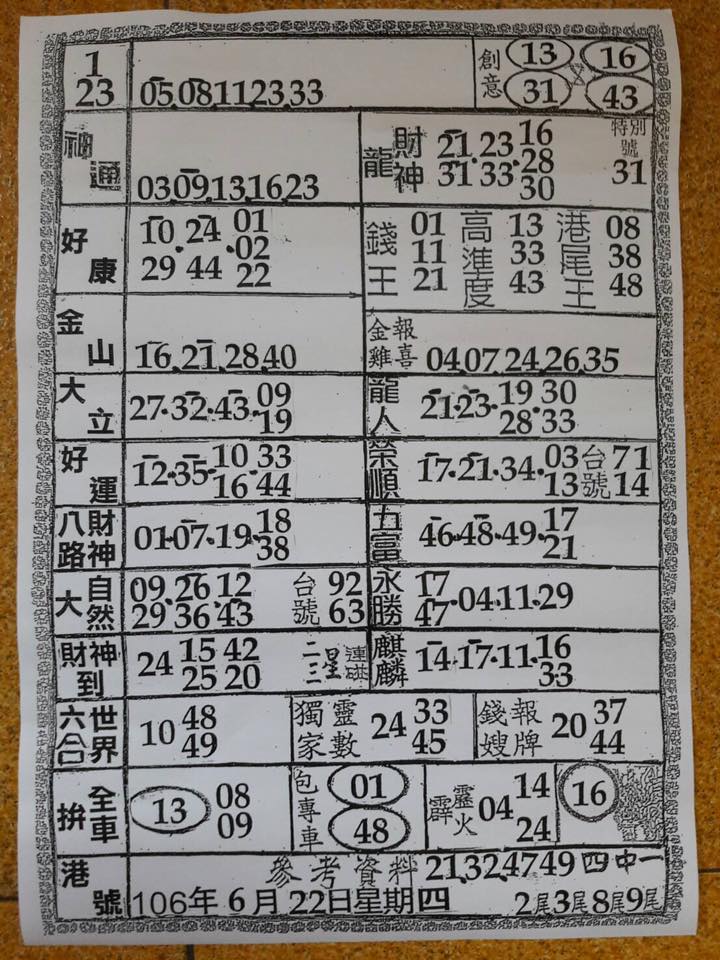 1
23
05.08.11.23.33
創意 13 16
31 43
神通
03.09.13.16.23
龍 財神 21.23.16
28
31 33 30
特別號
31
好康
10 24 01
02
29 44 22
錢王 01 11 21
高進度 13 33 43
港尾王 08 38 48
金山
16.21.28.40
金雞報喜 04.07.24.26.35
大立
27.32.43.09
19
龍人
21.23.19 30
28 33
好運
12.35.10 33
16 44
榮順
17.21.34.03
13
台號 71
14
八路財神
01.07.19.18
38
五富
46.48.49.17
21
大自然
09.26.12
29 36 43
台號 92
63
永勝
17
47.04.11.29
財神到
24 15 42
25 20
二三星連碰
麒麟
14.17.11.16
33
六合世界
10 48
49
獨家靈數
24 33
45
錢嫂報牌
20 37
44
拚全車
13 08
09
包專車
01
48
霹靂火
04 14
24
16
港號
參考資料 21.32.47.49 四中一
106年6月22日星期四
2尾3尾8尾9尾